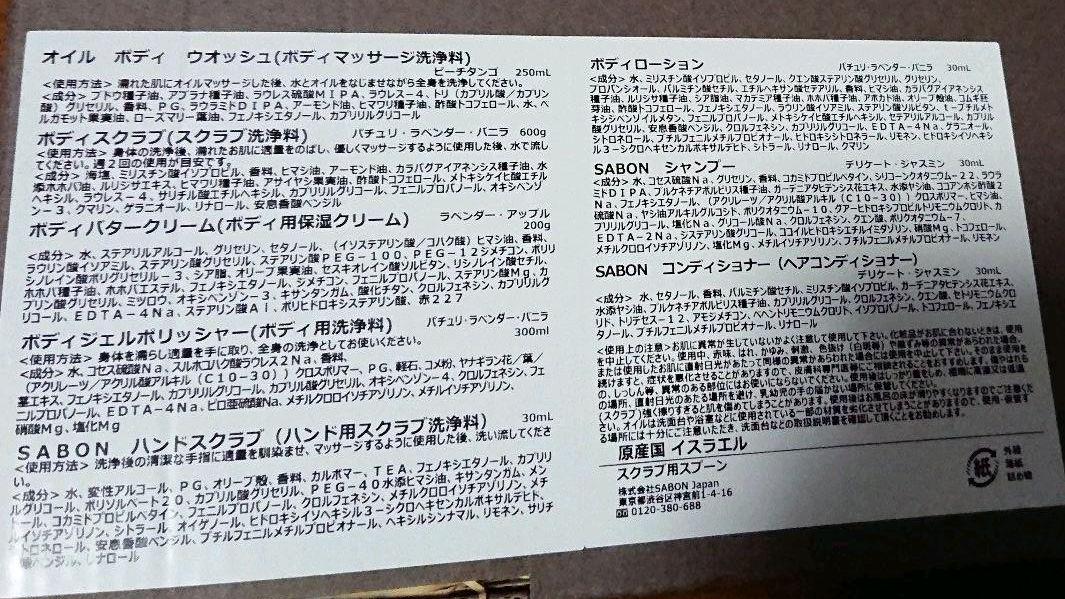 オイル ボディ ウオッシュ(ボディマッサージ洗浄料)
ピーチタンゴ 250mL
<使用方法> 濡れた肌にオイルマッサージした後、水とオイルをなじませながら全身を洗浄してください。
<成分> ブドウ種子油、アブラナ種子油、ラウレス硫酸ＭＩＰＡ、ラウレス－４、トリ(カプリル酸／カプリン
酸) グリセリル、香料、ＰＧ、ラウラミドＤＩＰＡ、アーモンド油、ヒマワリ種子油、酢酸トコフェロール、水、ベ
ルガモット果実油、ローズマリー葉油、フェノキシエタノール、カプリリルグリコール
ボディスクラブ(スクラブ洗浄料) パチュリ・ラベンダー・バニラ 600g
<使用方法> 身体の洗浄後、濡れたお肌に適量をのばし、優しくマッサージするように使用した後、水で流し
てください。週２回の使用が目安です。
<成分> 海塩、ミリスチン酸イソプロピル、香料、ヒマシ油、アーモンド油、カラパグアイアネンシス種子油、水
添ホホバ油、ルリシサエキス、ヒマワリ種子油、アサイヤシ果実油、酢酸トコフェロール、メトキシケイ酸エチル
ヘキシル、ラウレス－４、サリチル酸エチルヘキシル、カプリリルグリコール、フェニルプロパノール、オキシベンゾ
ン－３、クマリン、ゲラニオール、リナロール、安息香酸ベンジル
ボディバタークリーム(ボディ用保湿クリーム) ラベンダー・アップル
200g
<成分> 水、ステアリルアルコール、グリセリン、セタノール、(イソステアリン酸／コハク酸) ヒマシ油、香料、
ラウリン酸イソアミル、ステアリン酸グリセリル、ステアリン酸ＰＥＧ－100、ＰＥＧ－12ジメチコン、ポリリ
シノレイン酸ポリグリセリル－３、シア脂、オリーブ果実油、セスキオレイン酸ソルビタン、リシノレイン酸セチル、
ホホバ種子油、ホホバエステル、フェノキシエタノール、ジメチコン、フェニルプロパノール、ステアリン酸Ｍｇ、カ
プリン酸グリセリル、ミツロウ、オキシベンゾン－３、キサンタンガム、酸化チタン、クロルフェネシン、カプリリルグ
リコール、ＥＤＴＡ－４Ｎａ、ステアリン酸ＡＩ、ポリヒドロキシステアリン酸、赤２２７
ボディジェルポリッシャー(ボディ用洗浄料) パチュリ・ラベンダー・バニラ
300ml
<使用方法> 身体を濡らし適量を手に取り、全身の洗浄としてお使いください。
<成分> 水、コセス硫酸Ｎａ、スルホコハク酸ラウレス２Ｎａ、香料、
(アクリレーツ／アクリル酸アルキル (Ｃ10－30)) クロスポリマー、ＰＧ、軽石、コメ粉、ヤナギラン花／葉／
茎エキス、フェノキシエタノール、カプリリルグリコール、カプリル酸グリセリル、オキシベンゾン－４、クロルフェネシン、フェ
ニルプロパノール、ＥＤＴＡ－４Ｎａ、ピロ亜硫酸Na、メチルクロロイソチアゾリノン、メチルイソチアゾリノン、
硝酸Ｍｇ、塩化Ｍｇ
ＳＡＢＯＮ ハンドスクラブ (ハンド用スクラブ洗浄料) 30mL
<使用方法> 洗浄後の清潔な手指に適量を馴染ませ、マッサージするように使用した後、洗い流してくださ
い。
<成分> 水、変性アルコール、ＰＧ、オリーブ殻、香料、カルボマー、ＴＥＡ、フェノキシエタノール、カプリリ
ルグリコール、ポリソルベート20、カプリル酸グリセリル、ＰＥＧ－40水添ヒマシ油、キサンタンガム、メン
トール、コカミドプロピルベタイン、フェニルプロパノール、クロルフェネシン、メチルクロロイソチアゾリノン、メチ
ルイソチアゾリノン、シトラール、オイゲノール、ヒドロキシイソヘキシル３－シクロヘキセンカルボキサルデヒド、
シトロネロール、安息香酸ベンジル、ブチルフェニルメチルプロピオナール、ヘキシルシンナマル、リモネン、サリチ
酸ベンジル、リナロール
ボディローション パチュリ・ラベンダー・バニラ 30mL
<成分> 水、ミリスチン酸イソプロピル、セタノール、クエン酸ステアリン酸グリセリル、グリセリン、
プロパンジオール、パルミチン酸セチル、エチルヘキサン酸セテアリル、香料、ヒマシ油、カラパグアイアネンシス
種子油、ルリジサ種子油、シア脂油、マカデミア種子油、ホホバ種子油、アボカド油、オリーブ殻油、コムギ胚
芽油、酢酸トコフェロール、フェノキシエタノール、ラウリン酸イソアミル、ステアリン酸ソルビタン、ｔ－ブチルメト
キシベンゾイルメタン、フェニルプロパノール、メトキシケイヒ酸エチルヘキシル、セテアリルアルコール、カプリ
ル酸グリセリル、安息香酸ベンジル、クロルフェネシン、カプリリルグリコール、ＥＤＴＡ－４Na、ゲラニオール、
シトロネロール、ブチルフェニルメチルプロピオナール、ヒドロキシシトロネラール、リモネン、ヒドロキシイソヘキ
シル３－シクロヘキセンカルボキサルデヒド、シトラール、リナロール、クマリン
SABON シャンプー デリケート・ジャスミン 30mL
<成分> 水、コセス硫酸Ｎａ、グリセリン、香料、コカミドプロピルベタイン、シリコーンクオタニウム－22、ラウラ
ミドＤＩＰＡ、プルケネチアボルビリス種子油、ガーデニアタヒテンシス花エキス、水添ヤシ油、ココアンホ酢酸２
Na、フェノキシエタノール、(アクリレーツ／アクリル酸アルキル (Ｃ10－30)) クロスポリマー、ヒマシ油、
硫酸Na、ヤシ油アルキルグルコシド、ポリクオタニウム－10、グアーヒドロキシプロピルトリモニウムクロリド、カ
プリリルグリコール、塩化Na、グリコール酸Na、クロルフェネシン、クエン酸、ポリクオタニウム－7、
ＥＤＴＡ－2Na、ジステアリン酸グリコール、ココイルヒドロキシエチルイミダゾリン、硝酸Mg、トコフェロール、
メチルクロロイソチアゾリノン、塩化Mg、メチルイソチアゾリノン、ブチルフェニルメチルプロピオナール、リモネン
SABON コンディショナー (ヘアコンディショナー)
デリケート・ジャスミン 30mL
<成分> 水、セタノール、香料、パルミチン酸セチル、ミリスチン酸イソプロピル、ガーデニアタヒテンシス花エキス、
水添ヤシ油、プルケネチアボルビリス種子油、カプリリルグリコール、クロルフェネシン、クエン酸、セトリモニウムクロ
リド、トリデセス－12、アモジメチコン、ベヘントリモニウムクロリド、イソプロパノール、トコフェロール、フェノキシエ
タノール、ブチルフェニルメチルプロピオナール、リナロール
<使用上の注意> お肌に異常が生じていないかよく注意して使用して下さい。化粧品がお肌に合わないときは、使用
を中止してください。使用中、赤味、はれ、かゆみ、刺激、色抜け (白斑等) や黒ずみ等の異常があらわれた場合、
または使用したお肌に直射日光があたって同様の異常があらわれた場合には使用を中止して下さい。そのまま使用を
続けますと、症状を悪化させることがありますので、皮膚科専門医等にご相談されることをおすすめします。傷やはれも
の、しっしん等、異常のある部位にはお使いにならないでください。使用後は、しっかり蓋をしめ、極端に高温又は低温
の場所、直射日光のあたる場所を避け、乳幼児の手の届かない場所に保管してください。
(スクラブ) 強く擦りすぎると肌を傷めてしまうことがあります。使用後はお風呂の床が滑りやすくなりますのでご注意くだ
さい。オイルは洗面台や浴室などに使用されている一部の材質を劣化させてしまうことがありますので、使用・保管す
る場所には十分にご注意いただき、洗面台などの取扱説明書を確認して頂くことをお勧めします。
原産国 イスラエル
スクラブ用スプーン
株式会社SABON Japan
東京都渋谷区神宮前1-4-16
0120-380-688
紙
外装
薄紙
詰め物